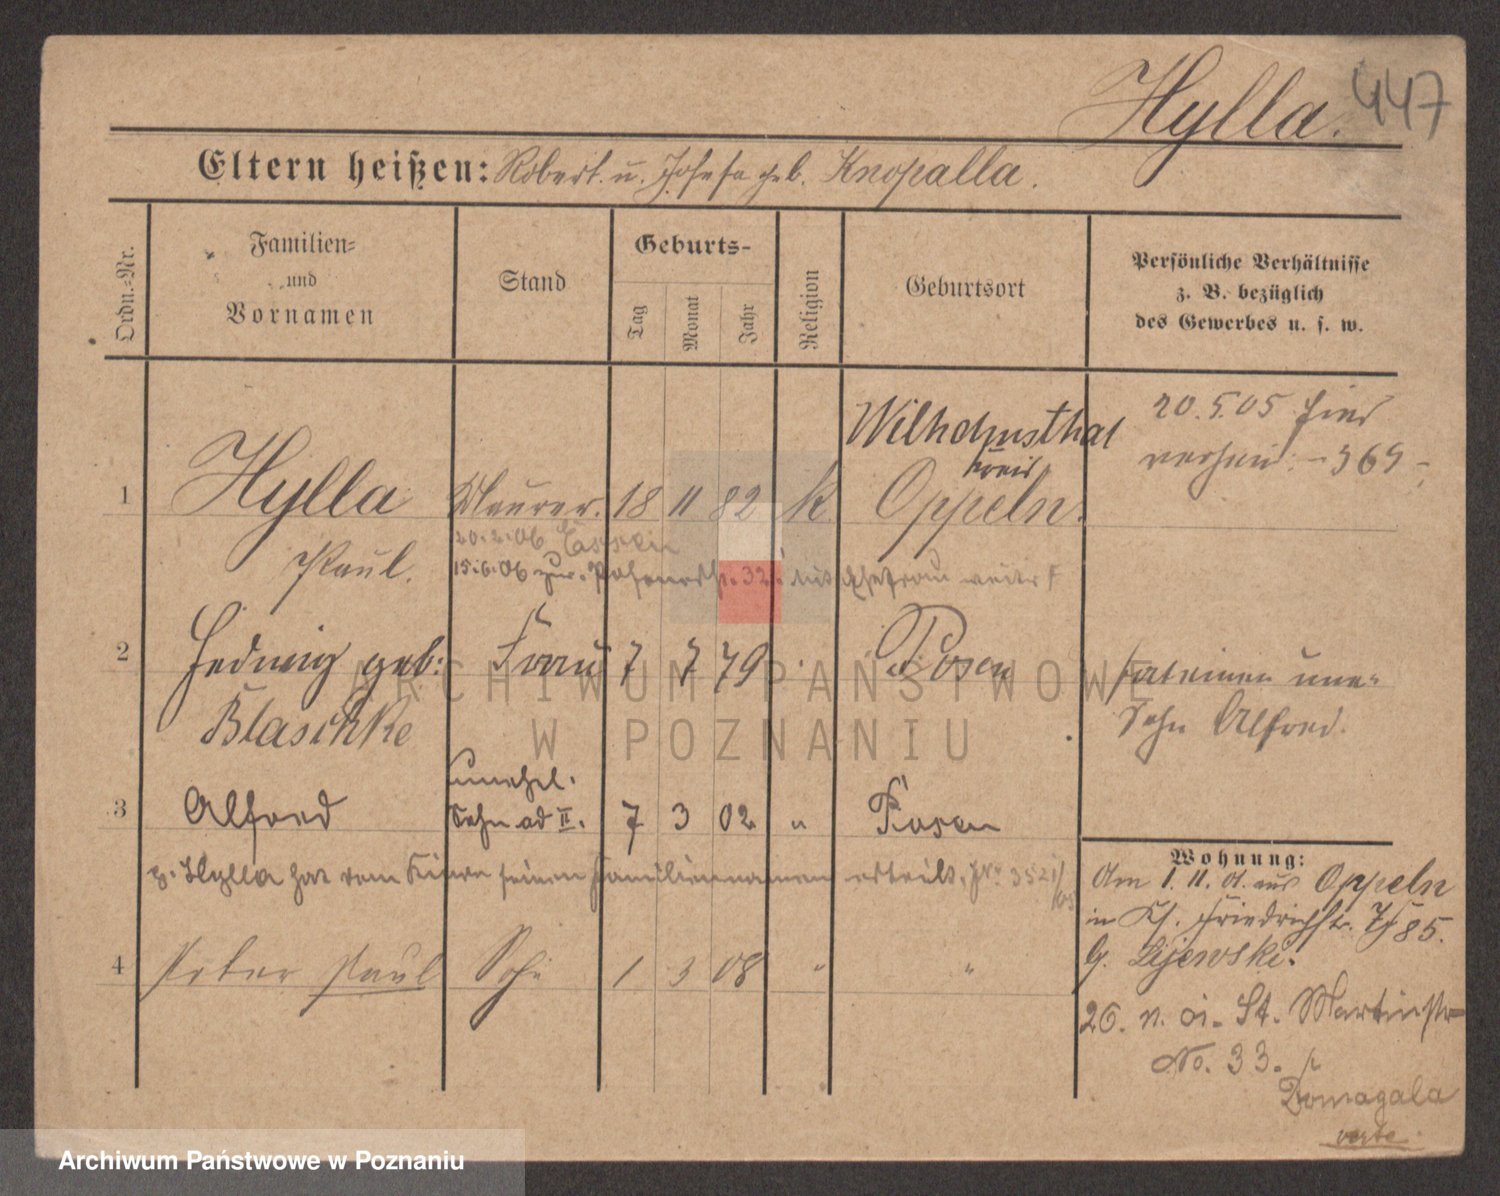 Hylla. 447
Eltern heißen: Robert u. Josefa geb. Knopalla.
Ordn.-Nr.
Familien-
und
Vornamen
Stand
Geburts-
Tag
Monat
Jahr
Religion
Geburtsort
Persönliche Verhältnisse
z. B. bezüglich
des Gewerbes u. s. w.
Wilhelmsthal
Kreis
20.5.05 hier
verheir. - 369 -
1 Hylla Maurer. 18 11 82 k Oppeln.
20.2.06
Paul. 15.6.06 zur. 32 mit Ehefrau weiter
2 Hedwig geb: Frau 7 7 79 Posen
Blaschke
hat einen une-
Sohn Alfred.
unehel.
3 Alfred Sohn ad II. 7 3 02 " Posen
p. Hylla hat dem Kinde seinen Familiennamen erteilt.
4 Peter Paul Sohn 1 3 08 " "
Wohnung:
Am 1.11. 01. aus Oppeln
in Kf. Friedrichstr. 85.
b. Lijewski.
26. St. Martinstr
No. 33.
Domagala
verte
ARCHIWUM PAŃSTWOWE
W POZNANIU
Archiwum Państwowe w Poznaniu